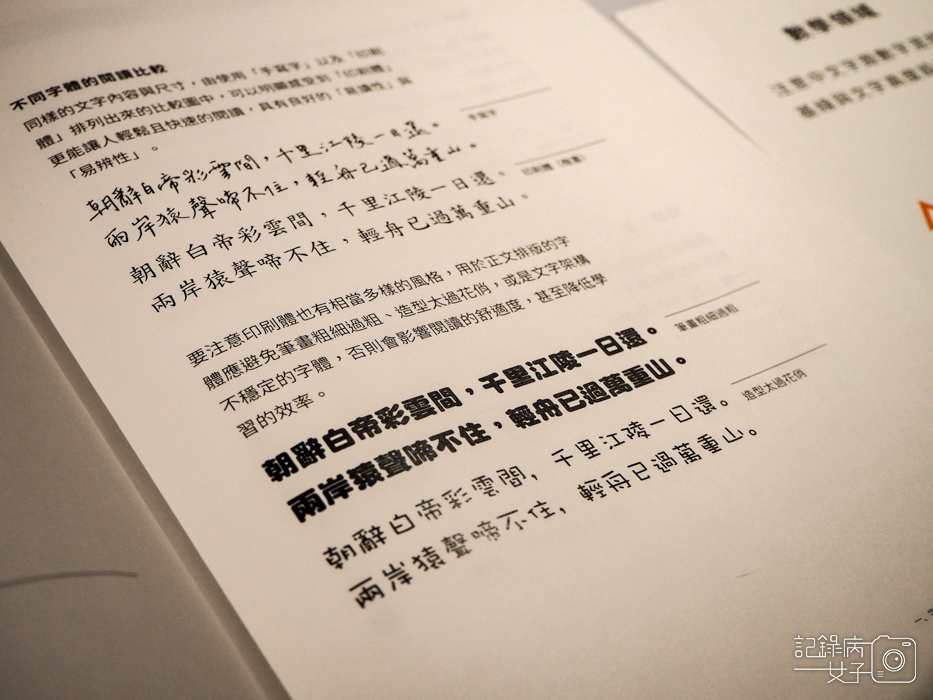 不同字體的閱讀比較
同樣的文字內容與尺寸，由使用「手寫字」以及「印刷
體」排列出來的比較圖中，可以明顯感受到「印刷體」
更能讓人輕鬆且快速的閱讀，具有良好的「易讀性」與
「易辨性」。
手寫字
朝辭白帝彩雲間，千里江陵一日還。
兩岸猿聲啼不住，輕舟已過萬重山。
印刷體（楷書）
朝辭白帝彩雲間，千里江陵一日還。
兩岸猿聲啼不住，輕舟已過萬重山。
要注意印刷體也有相當多樣的風格，用於正文排版的字
體應避免筆畫粗細過粗、造型太過花俏，或是文字架構
不穩定的字體，否則會影響閱讀的舒適度，甚至降低學
習的效率。
筆畫粗細過粗
朝辭白帝彩雲間，千里江陵一日還。
兩岸猿聲啼不住，輕舟已過萬重山。
造型太過花俏
朝辭白帝彩雲間，千里江陵一日還。
兩岸猿聲啼不住，輕舟已過萬重山。
數學領域
注意中文字跟數字混
基線與文字高度
記錄病
女子